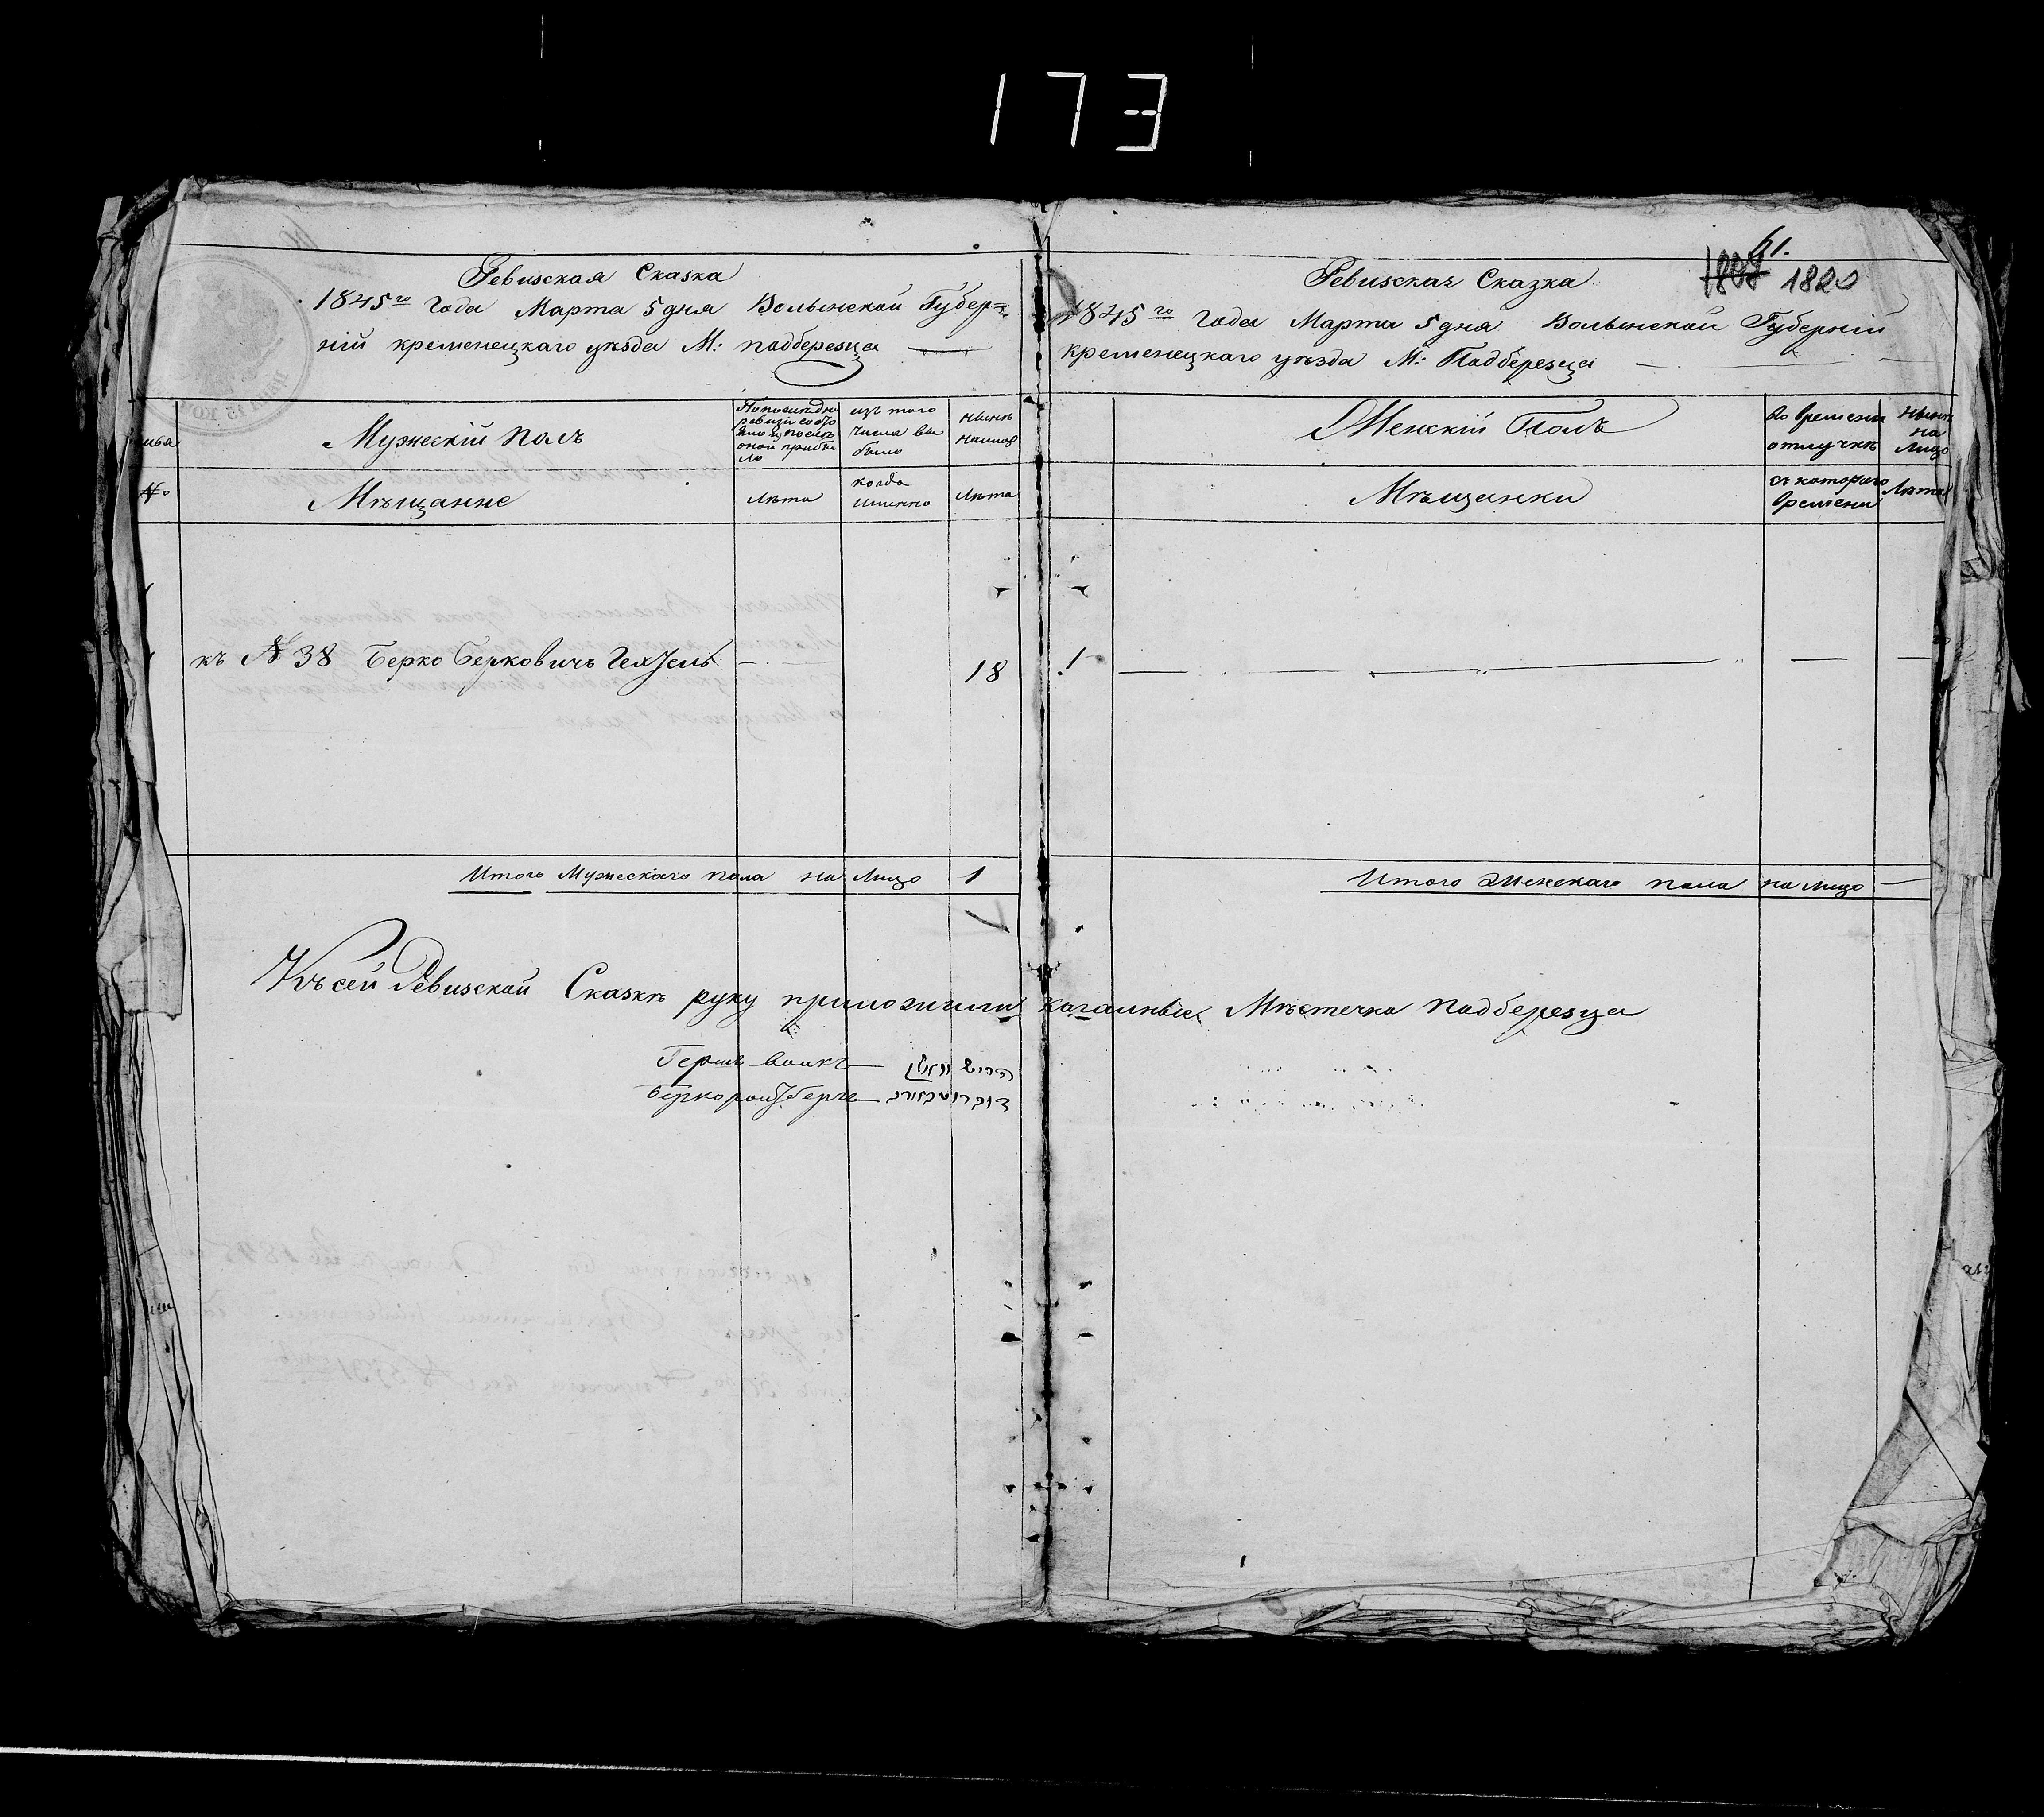 173
61.
1820
Ревизская Сказка
1845го года Марта 5 дня Волынской Губер=
ніи кременецкаго уѣзда М: подберезца
Мужескій полъ
По последней ревизіи состояло и после оной прибыло
изъ того числа выбыло
нынѣ налицо
№
Мѣщанне
лѣта
когда именно
лѣта
къ № 38 Берко Берковичъ
18
Итого Мужескаго пола на лицо 1
Ревизская Сказка
1845го года Марта 5 дня Волынской Губерніи
кременецкаго уѣзда М: Подберезца
Женскій Полъ
Во времени отлучкѣ
Нынѣ на лицо
Мѣщанки
съ котораго времени
Лѣта
1
Итого Женскаго пола на лицо
Къ сей Ревизской Сказкѣ руку приложили кагалные Мѣстечка Подберезца
Гершъ волкъ
Берко